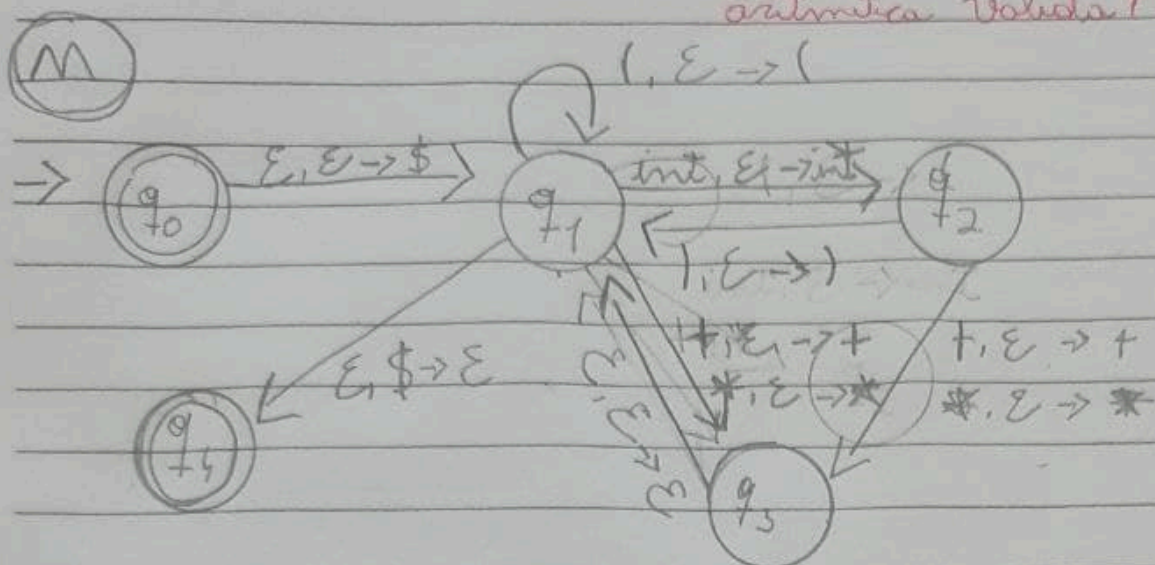 aritmética Valida!
M
(, ε → (
ε, ε → $
int, ε → int
q0
q1
q2
), ε → )
+, ε → +
+, ε → +
ε, $ → ε
*, ε → *
*, ε → *
ε, ε → ε
q4
q3